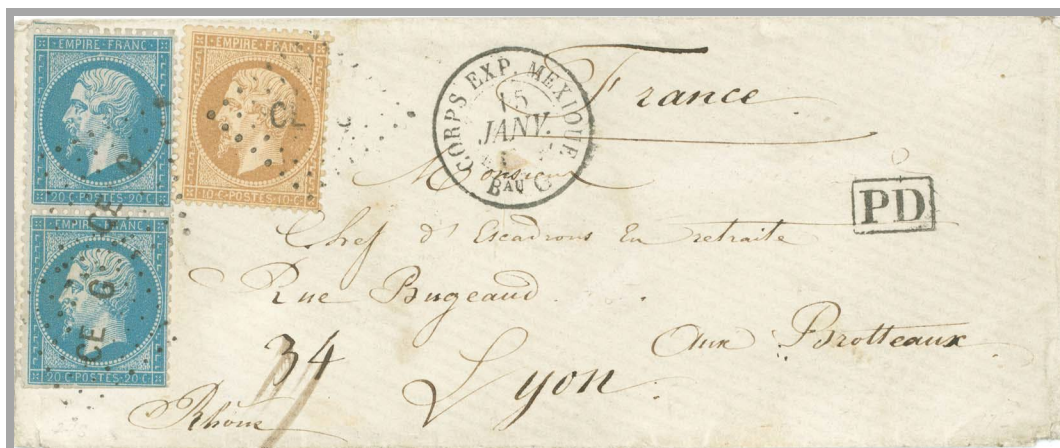 EMPIRE · FRANC
20 C · POSTES · 20 C
EMPIRE · FRANC
20 C · POSTES · 20 C
EMPIRE · FRANC
10 C · POSTES · 10 C
CE G
CE G
CE
CORPS EXP. MEXIQUE
15
JANV.
BAU G
France
Monsieur
PD
Chef d'Escadrons En retraite
Rue Bugeaud
34
aux Brotteaux
Lyon
Rhône